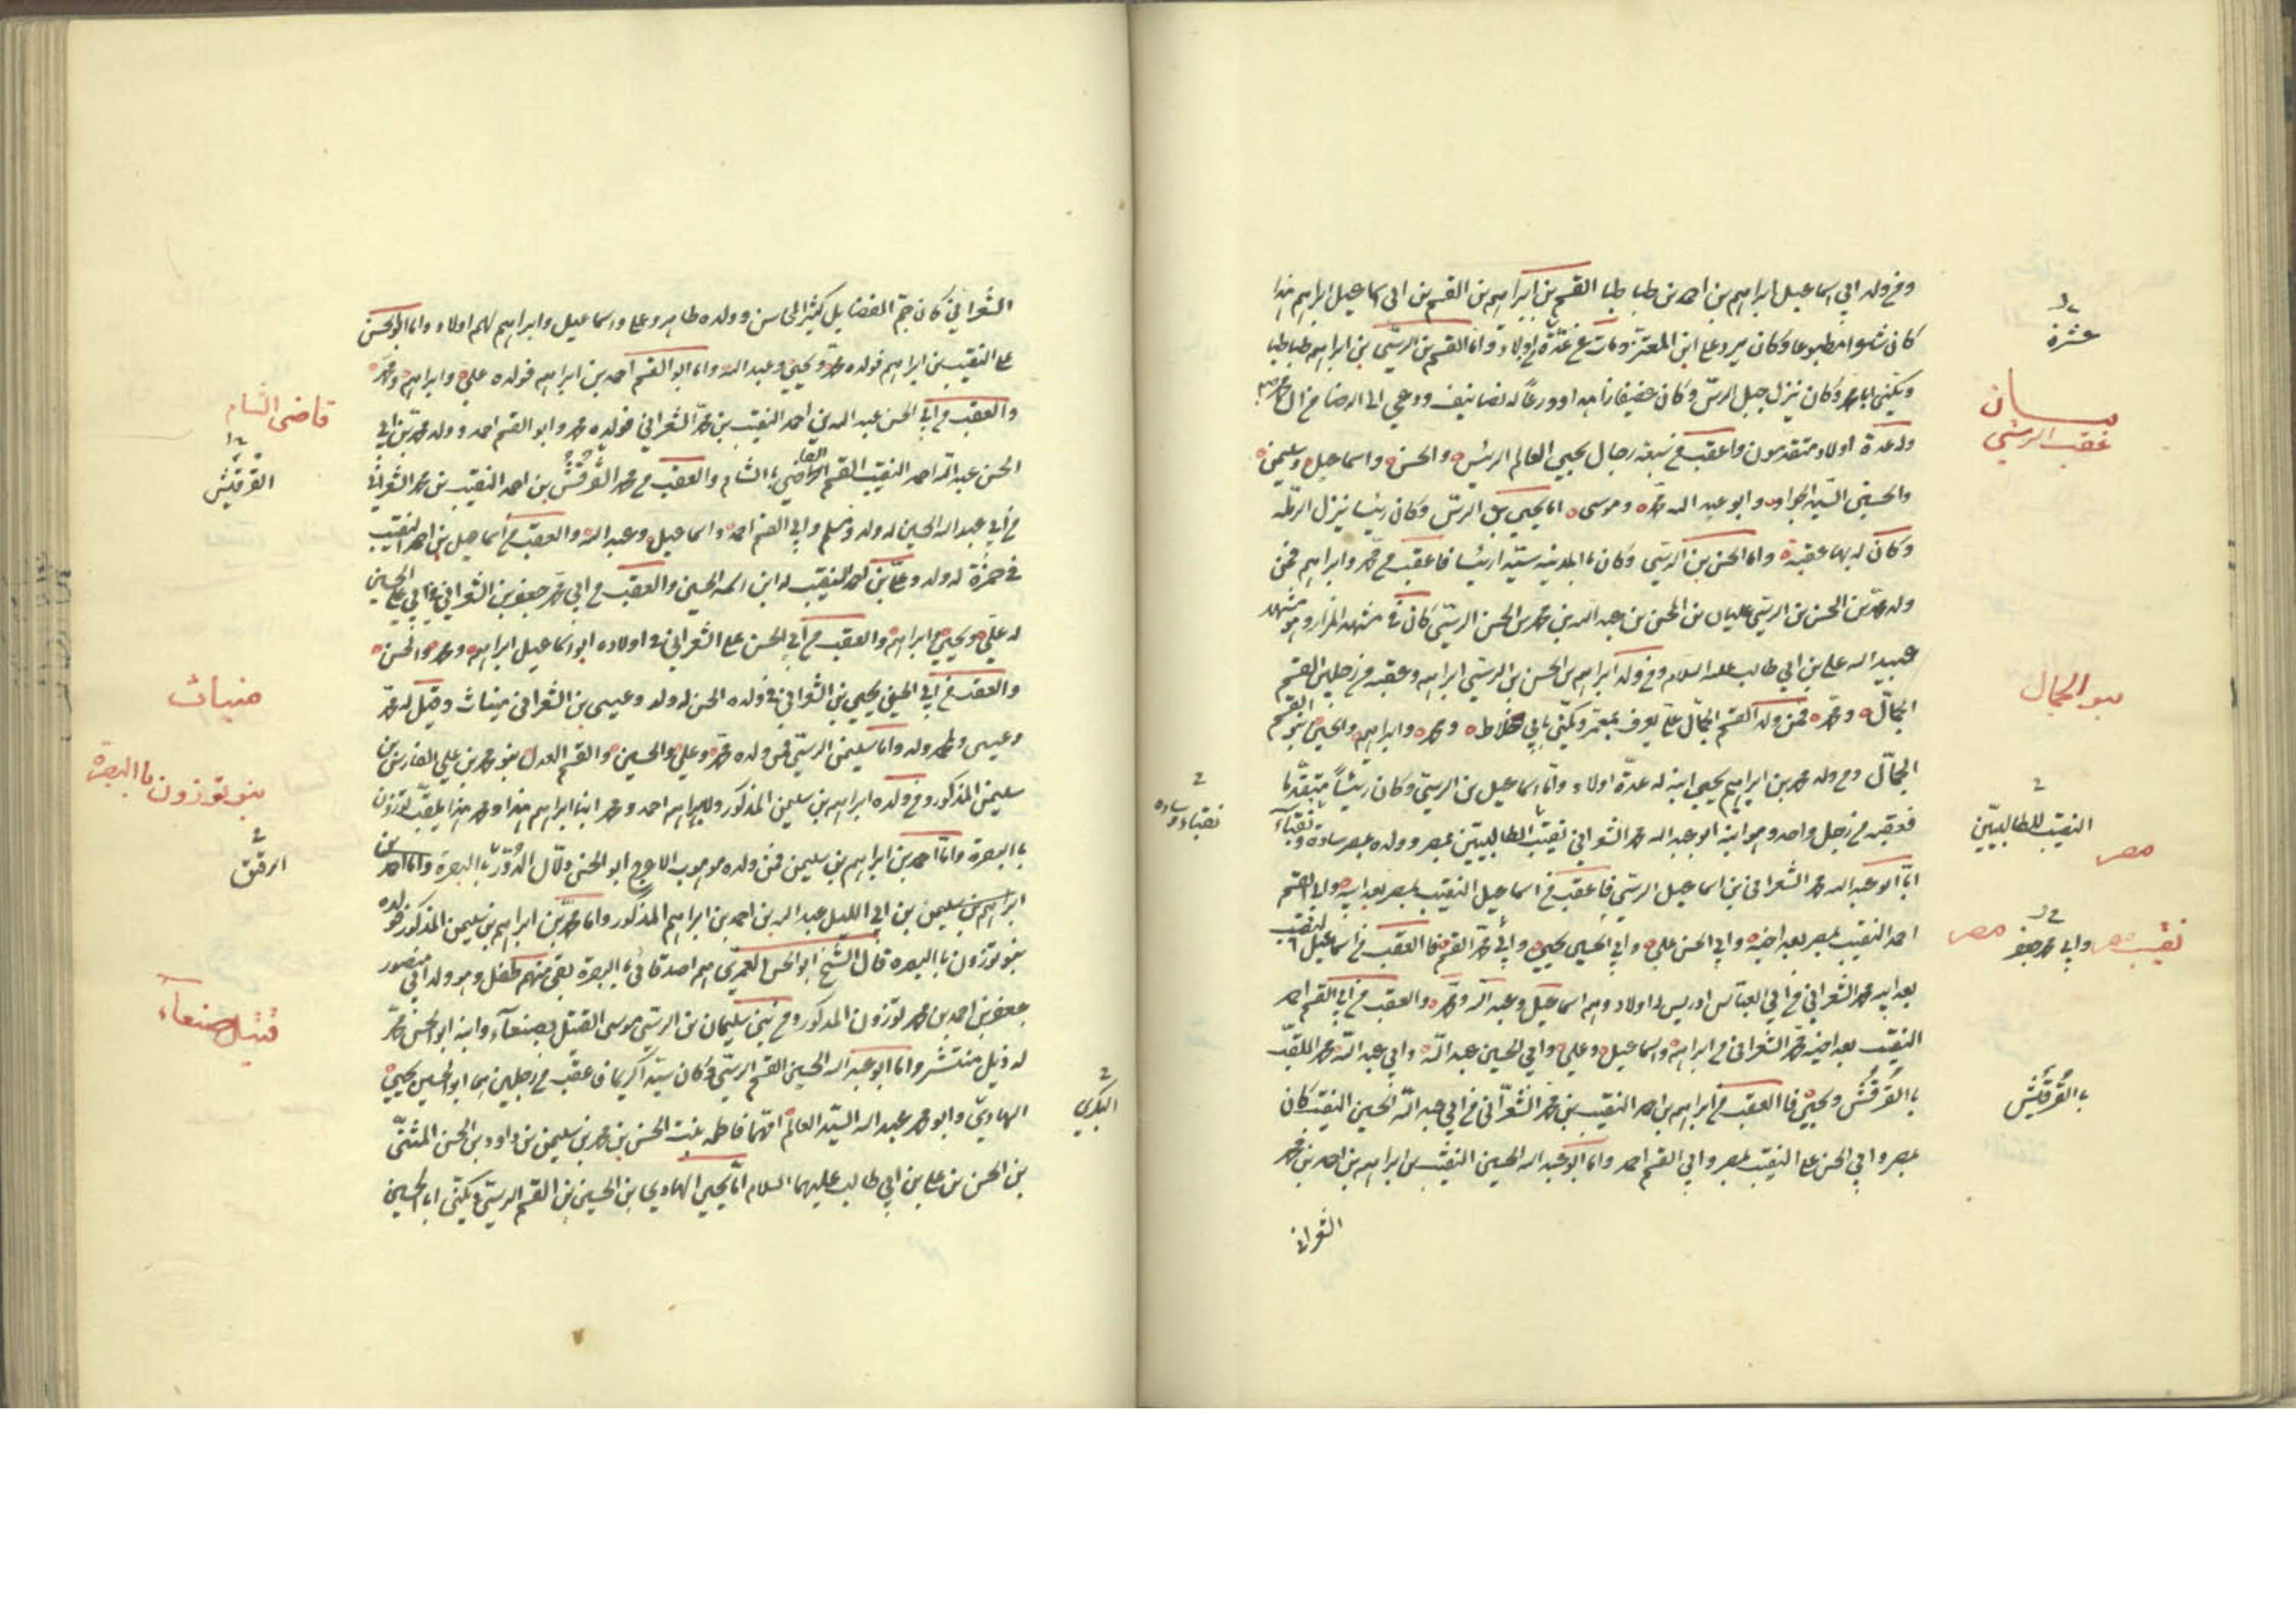 وفي ولد ابي اسماعيل ابراهيم بن احمد بن طباطبا القسم بن ابراهيم بن القسم بن ابي اسماعيل ابراهيم هذا
كان شاعرا مطبوعا وكان يرد على ابن المعتز ومات عن عدة اولاد واما القسم بن الرسي بن ابراهيم طباطبا
ويكنى ابا محمد وكان ينزل جبل الرس وكان عفيفا زاهدا ورعا له تصانيف ودعي الى الرضا من ال محمد
وله عدة اولاد متقدمون واعقب من سبعة رجال يحيى العالم الرئيس والحسن واسماعيل وسليمن
والحسين السيد الجواد وابو عبد الله محمد وموسى اما يحيى بن الرسي وكان رئيسا ينزل الرملة
وكان له بها عقب واما الحسن بن الرسي وكان بالمدينة سيدا رئيسا فاعقب من محمد وابراهيم فمن
ولد محمد بن الحسن بن الرسي عليان بن الحسن بن عبد الله بن محمد بن الحسن الرسي كان في مشهد المزار وهو مشهد
عبيد الله علي بن ابي طالب عليه السلام وفي ولد ابراهيم بن الحسن بن الرسي ابراهيم وعقبه من رجلين القسم
الجمال ومحمد فمن ولد القسم الجمال علي يعرف بمعمر ويكنى بابي خلاط ومحمد وابراهيم والحسين بنو القسم
الجمال ومن ولد محمد بن ابراهيم يحيى ابنه له عدة اولاد واما اسماعيل بن الرسي وكان رئيسا متقدما
فعقبه من رجل واحد وهو ابنه ابو عبد الله محمد الشعراني نقيب الطالبيين بمصر وولده بمصر سادة ونقباء
اما ابو عبد الله محمد الشعراني بن اسماعيل الرسي فاعقب من اسماعيل النقيب بمصر بعد ابيه وابي القسم
احمد النقيب بمصر بعد اخيه وابي الحسن علي وابي الحسين يحيى وابي محمد القسم فالعقب من اسماعيل النقيب
بعد ابيه محمد الشعراني من ابي العباس ادريس له اولاد وهم اسماعيل وعبد الله ومحمد والعقب من ابي القسم احمد
النقيب بعد اخيه محمد الشعراني من ابراهيم واسماعيل وعلي وابي الحسين عبد الله وابي عبد الله محمد الملقب
بالقرقش ويحيى فالعقب من ابراهيم بن احمد النقيب بن محمد الشعراني من ابي عبد الله الحسين النقيب كان
بمصر وابي الحسن علي النقيب بمصر وابي القسم احمد واما ابو عبد الله الحسين النقيب بن ابراهيم بن احمد بن محمد
الشعراني
عشرة
عقب الرسي
بنو الجمال
النقيب للطالبيين
مصر
نقيب مصر وابي محمد جعفر مصر
بالقرقش
نقباء وساده
الشعراني كان جم الفضايل كثير المحاسن وولده طاهر وعلي واسماعيل وابراهيم لهم اولاد واما ابو الحسن
علي النقيب بن ابراهيم فولده محمد ويحيى وعبد الله واما ابو القسم احمد بن ابراهيم فولده علي وابراهيم ومحمد
والعقب من ابي الحسن عبد الله بن احمد النقيب بن محمد الشعراني فولده محمد وابو القسم احمد وولد محمد بن ابي
الحسن عبد الله احمد النقيب القسم القاضي بالشام والعقب من محمد القرقش بن احمد النقيب بن محمد الشعراني
من ابي عبد الله الحسين له ولد ومسلم وابي الغنم احمد واسماعيل وعبد الله والعقب من اسماعيل بن احمد النقيب
في حمزة له ولد وعلي بن احمد النقيب له ابن اسمه الحسين والعقب من ابي محمد جعفر بن الشعراني في ابي علي الحسين
له علي ويحيى وابراهيم والعقب من ابي الحسن علي الشعراني في اولاده ابو اسماعيل ابراهيم ومحمد والحسن
والعقب من ابي الحسين يحيى بن الشعراني في ولده الحسن له ولد وعيسى بن الشعراني مينات وقيل له محمد
وعيسى ولمحمد ولد واما سليمن الرسي فمن ولده محمد وعلي والحسين والقسم العدل بنو محمد بن علي الفارس بن
سليمن المذكور وفي ولده ابراهيم بن سليمن المذكور ولابراهيم احمد ومحمد ابنا ابراهيم هذا ومحمد هذا يلقب توزون
بالبصرة واما احمد بن ابراهيم بن سليمن فمن ولده موهوب الاعوج ابو الحسن دلال الدور بالبصرة واما احمد بن
ابراهيم بن سليمن بن ابي الليل عبد الله بن احمد بن ابراهيم المذكور واما محمد بن ابراهيم بن سليمن المذكور فولده
بنو توزون بالبصره قال الشيخ ابو الحسن العمري هم اصدقائي بالبصرة بقي منهم طفل وهو ولد ابي منصور
جعفر بن احمد بن محمد توزون المذكور وفي بني سليمان بن الرسي موسى القتيل بصنعاء وابنه ابو الحسن محمد
له ذيل منتشر واما ابو عبد الله الحسين القسم الرسي وكان سيدا كريما فاعقب من رجلين هما ابو الحسين يحيى
الهادي وابو محمد عبد الله السيد العالم امهما فاطمه بنت الحسن بن محمد بن سليمن بن داود بن الحسن المثنى
بن الحسن بن علي بن ابي طالب عليهما السلام اما يحيى الهادي بن الحسين بن القسم الرسي ويكنى ابا الحسين
قاضي الشام
القرقش
مينات
بنو توزون بالبصرة
الرقق
قتيل صنعاء
البكري